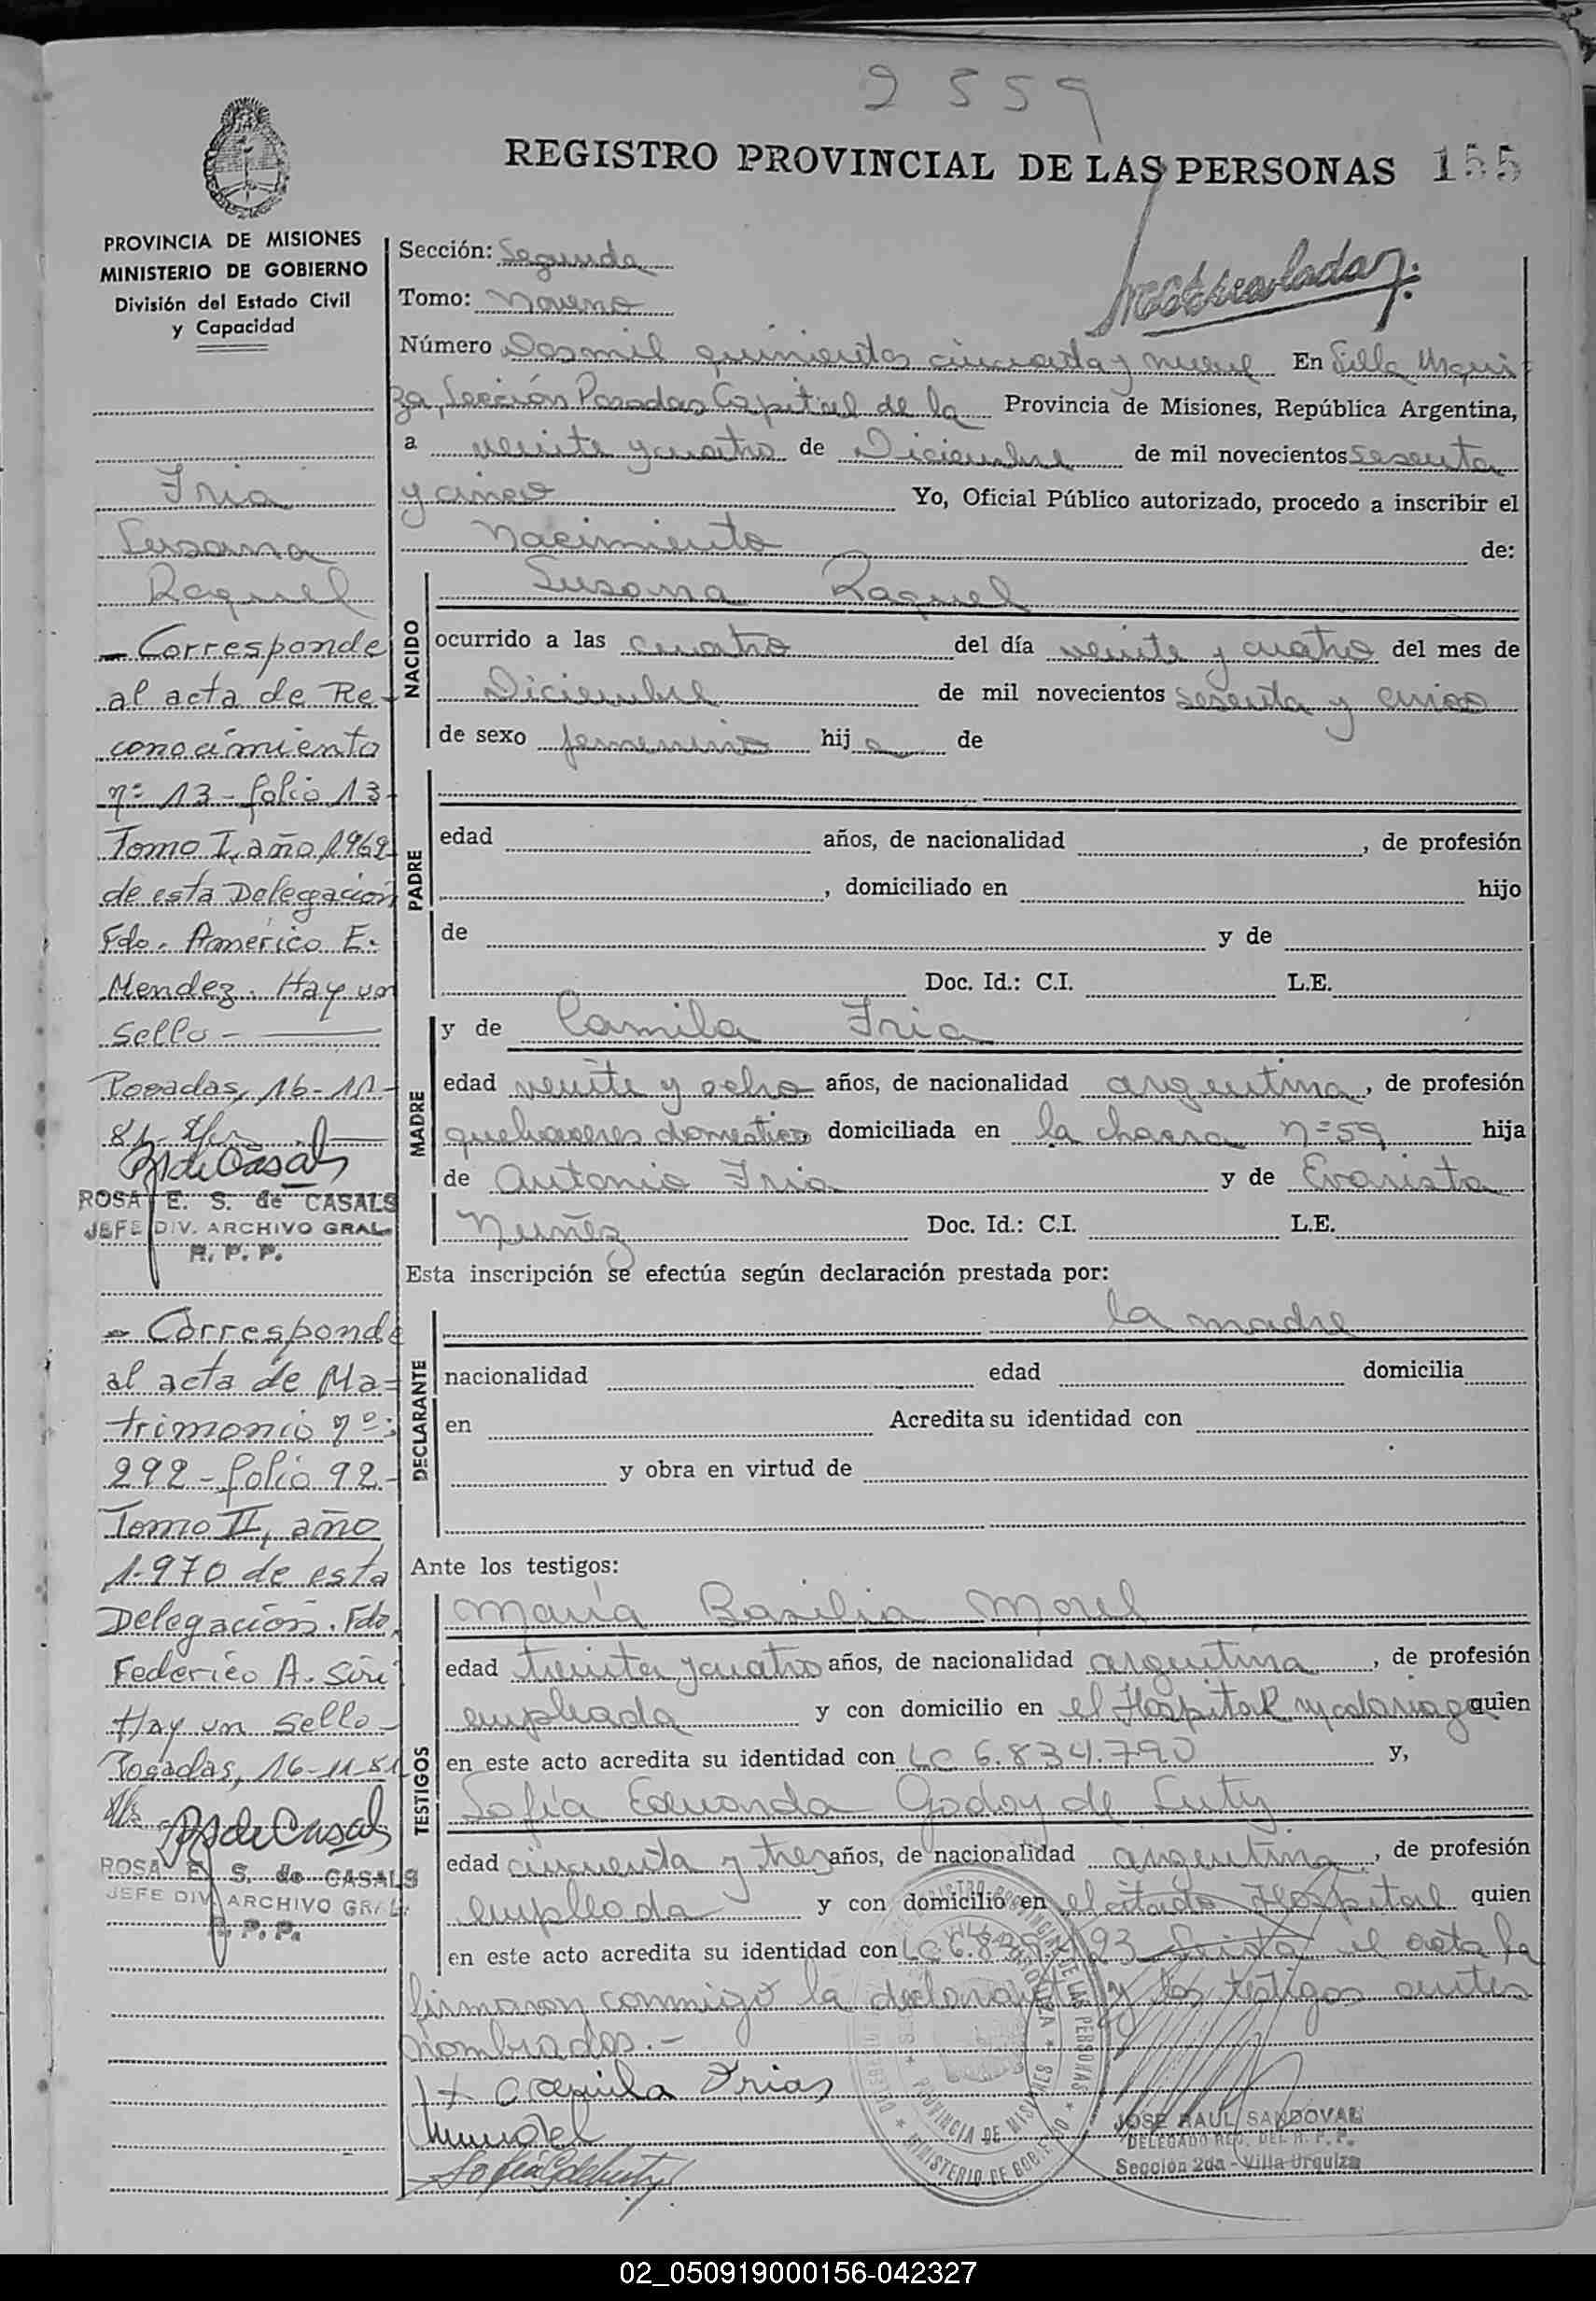 2559
REGISTRO PROVINCIAL DE LAS PERSONAS 155
PROVINCIA DE MISIONES
MINISTERIO DE GOBIERNO
División del Estado Civil
y Capacidad
Fria
Susana
Raquel
- Corresponde
al acta de Re-
conocimiento
nº 13 - folio 13
Tomo I, año 1969
de esta Delegación
Fdo. Américo E.
Mendez. Hay un
Sello -
Posadas, 16-11-
81-
ROSA E. S. de CASALS
JEFE DIV. ARCHIVO GRAL
R. P. P.
- Corresponde
al acta de Ma-
trimonio nº:
292 - folio 92 -
Tomo II, año
1.970 de esta
Delegación. Fdo.
Federico A. Siri
Hay un Sello -
Posadas, 16-11-81
ROSA E. S. de CASALS
JEFE DIV. ARCHIVO GRAL
R. P. P.
Sección: Segunda
Tomo: Noveno
Número Dosmil quinientos cincuenta y nueve En Villa Urqui
za, Sección Posadas Capital de la Provincia de Misiones, República Argentina,
a veinte y cuatro de Diciembre de mil novecientos sesenta
y cinco Yo, Oficial Público autorizado, procedo a inscribir el
Nacimiento de:
NACIDO
Susana Raquel
ocurrido a las cuatro del día veinte y cuatro del mes de
Diciembre de mil novecientos sesenta y cinco
de sexo femenino hij a de
PADRE
edad años, de nacionalidad , de profesión
, domiciliado en hijo
de y de
Doc. Id.: C.I. L.E.
MADRE
y de Camila Fria
edad veinte y ocho años, de nacionalidad argentina, de profesión
quehaceres domesticos domiciliada en la chacra nº 59 hija
de Antonio Fria y de Evarista
Nuñez Doc. Id.: C.I. L.E.
Esta inscripción se efectúa según declaración prestada por:
DECLARANTE
la madre
nacionalidad edad domicilia
en Acredita su identidad con
y obra en virtud de
Ante los testigos:
TESTIGOS
María Basilia Morel
edad treinta y cuatro años, de nacionalidad argentina, de profesión
empleada y con domicilio en el Hospital quien
en este acto acredita su identidad con LC 6.834.790 y,
Sofía Eduarda Godoy de Luty
edad cincuenta y tres años, de nacionalidad argentina, de profesión
empleada y con domicilio en el citado Hospital quien
en este acto acredita su identidad con LC 6. el acta la
firmaron conmigo la declarante y los testigos antes
nombrados.-
Camila Frias
JOSE RAUL SANDOVAL
DELEGADO REG. DEL R. P. P.
Sección 2da - Villa Urquiza
MINISTERIO DE GOBIERNO
PROVINCIA DE MISIONES
02_050919000156-042327